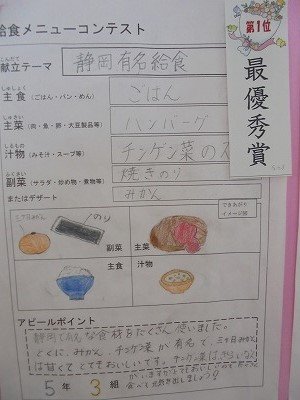 給食メニューコンテスト
第1位
最優秀賞
こんだて
献立テーマ 静岡有名給食
しゅしょく
主食(ごはん・パン・めん) ごはん
しゅさい
主菜(肉・魚・卵・大豆製品等) ハンバーグ
しるもの
汁物(みそ汁・スープ等) チンゲン菜のス
ふくさい
副菜(サラダ・炒め物・煮物等) 焼きのり
またはデザート みかん
三ケ日みかん のり
副菜 主菜
できあがり
イメージ図
主食 汁物
アピールポイント
静岡で有名な食材をたくさん使いました。
とくに、みかん、チンゲン菜が有名で、三ケ日みかん
は甘くてとてもおいしいです。チンゲン菜は
5年3組
食べて